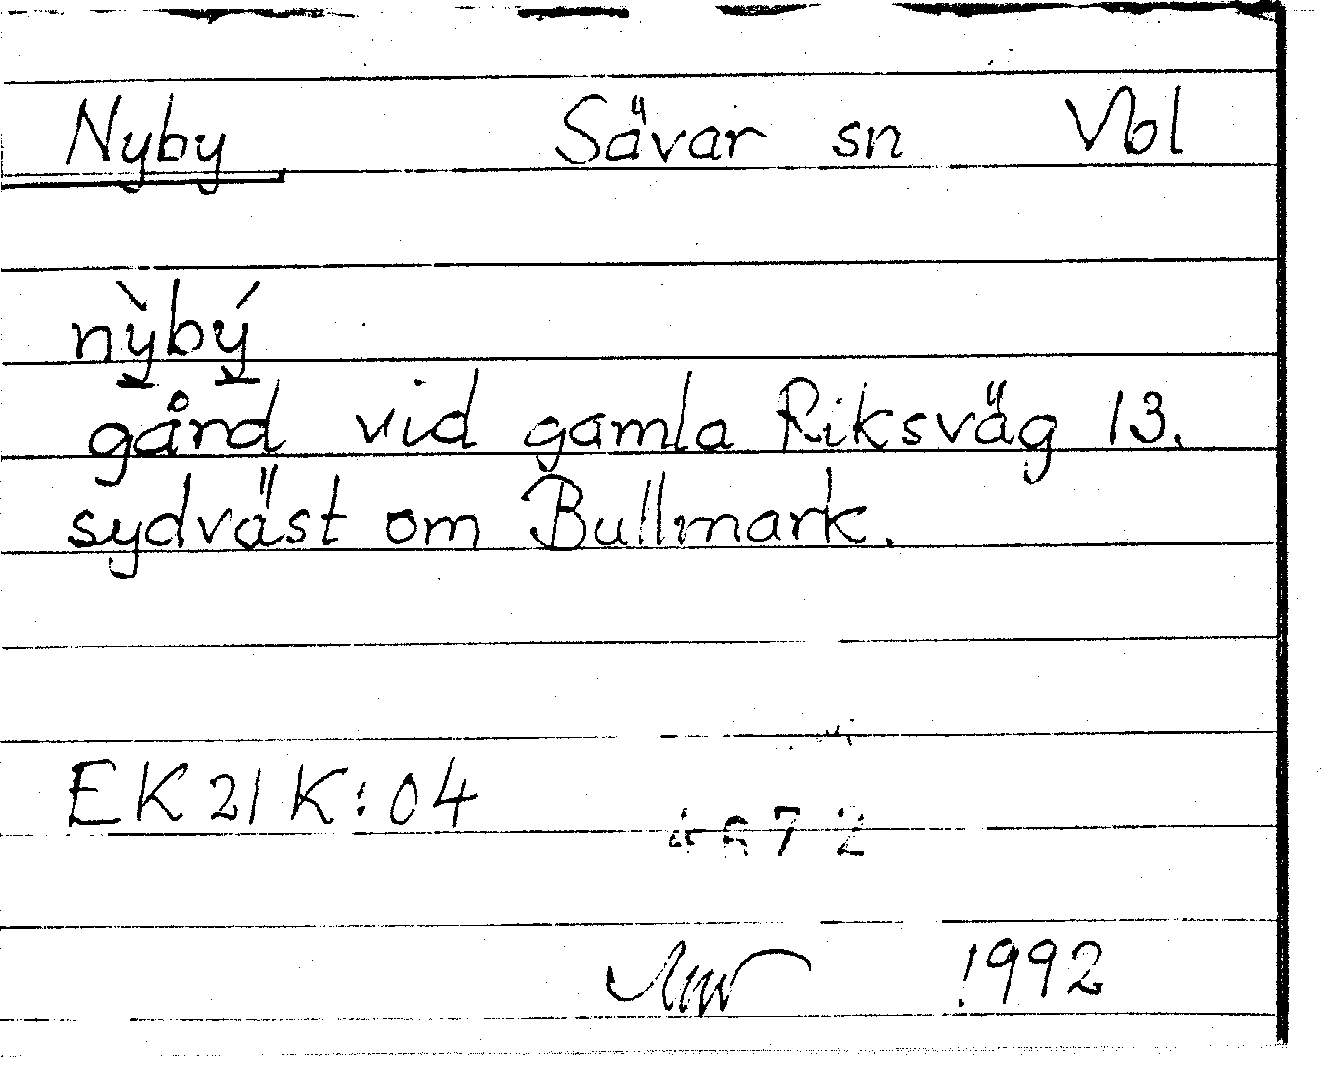 Nyby Sävar sn Vbl
nỳbý
gård vid gamla Riksväg 13.
sydväst om Bullmark.
EK 21 K:04
4672
1992